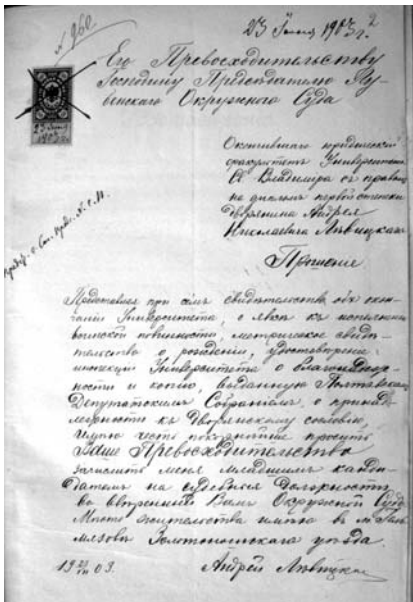 23 Июня 1903 г.
N. 960
Его Превосходительству
Господину Председателю Лу-
бенскаго Окружнаго Суда
23 Июня
1903
Окончившаго юридический
факультет Университета
Св. Владимира с правом
на диплом первой степени
дворянина Андрея
Николаевича Лѣвицкаго
Прошение
Представляя при сем свидѣтельства: об окон-
чании Университета, о явкѣ к исполнению
воинской повинности, метрическое свидѣ-
тельство о рождении, удостоверение
инспекции Университета о благонадеж-
ности и копию, выданную Полтавским
Депутатским Собранием, о принад-
лежности к дворянскому сословию,
имѣю честь покорнѣйше просить
Ваше Превосходительство
зачислить меня младшим канди-
датом на судебныя должности
во ввѣренный Вам Окружной Суд.
Мѣсто жительства имѣю в м. Гель-
мязовѣ Золотоношскаго уѣзда.
19 03.
Андрей Лѣвицкий